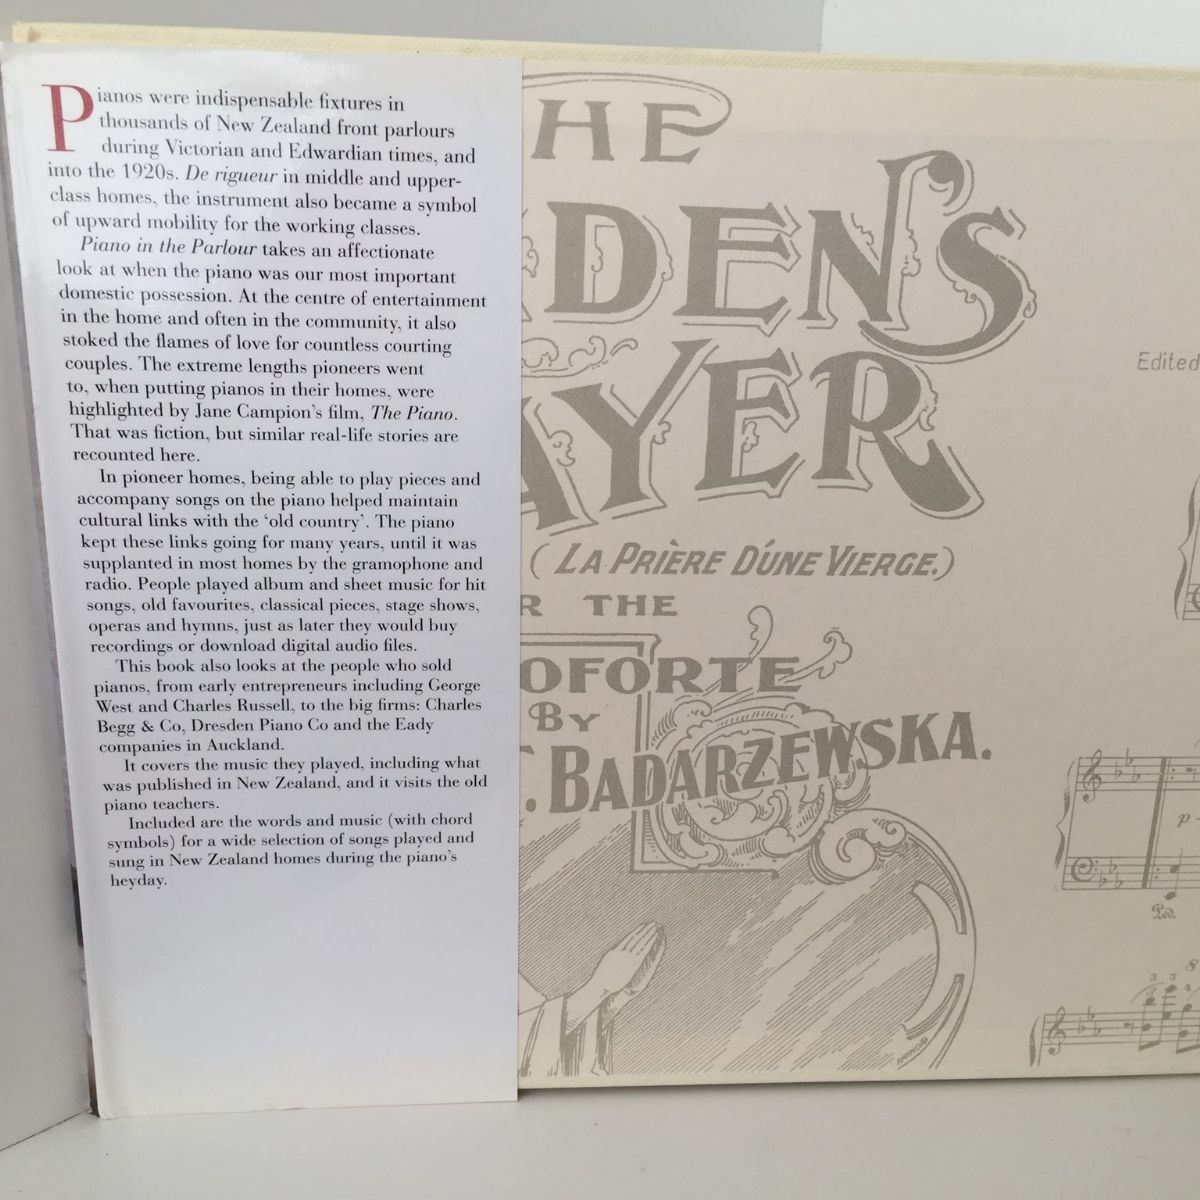 Pianos were indispensable fixtures in
thousands of New Zealand front parlours
during Victorian and Edwardian times, and
into the 1920s. De rigueur in middle and upper-
class homes, the instrument also became a symbol
of upward mobility for the working classes.
Piano in the Parlour takes an affectionate
look at when the piano was our most important
domestic possession. At the centre of entertainment
in the home and often in the community, it also
stoked the flames of love for countless courting
couples. The extreme lengths pioneers went
to, when putting pianos in their homes, were
highlighted by Jane Campion's film, The Piano.
That was fiction, but similar real-life stories are
recounted here.
In pioneer homes, being able to play pieces and
accompany songs on the piano helped maintain
cultural links with the 'old country'. The piano
kept these links going for many years, until it was
supplanted in most homes by the gramophone and
radio. People played album and sheet music for hit
songs, old favourites, classical pieces, stage shows,
operas and hymns, just as later they would buy
recordings or download digital audio files.
This book also looks at the people who sold
pianos, from early entrepreneurs including George
West and Charles Russell, to the big firms: Charles
Begg & Co, Dresden Piano Co and the Eady
companies in Auckland.
It covers the music they played, including what
was published in New Zealand, and it visits the old
piano teachers.
Included are the words and music (with chord
symbols) for a wide selection of songs played and
sung in New Zealand homes during the piano's
heyday.
HE
DEN'S
AYER
(LA PRIÈRE D'ÚNE VIERGE.)
R THE
OFORTE
BY
T. BADARZEWSKA.
Edited
p
Ped.
8